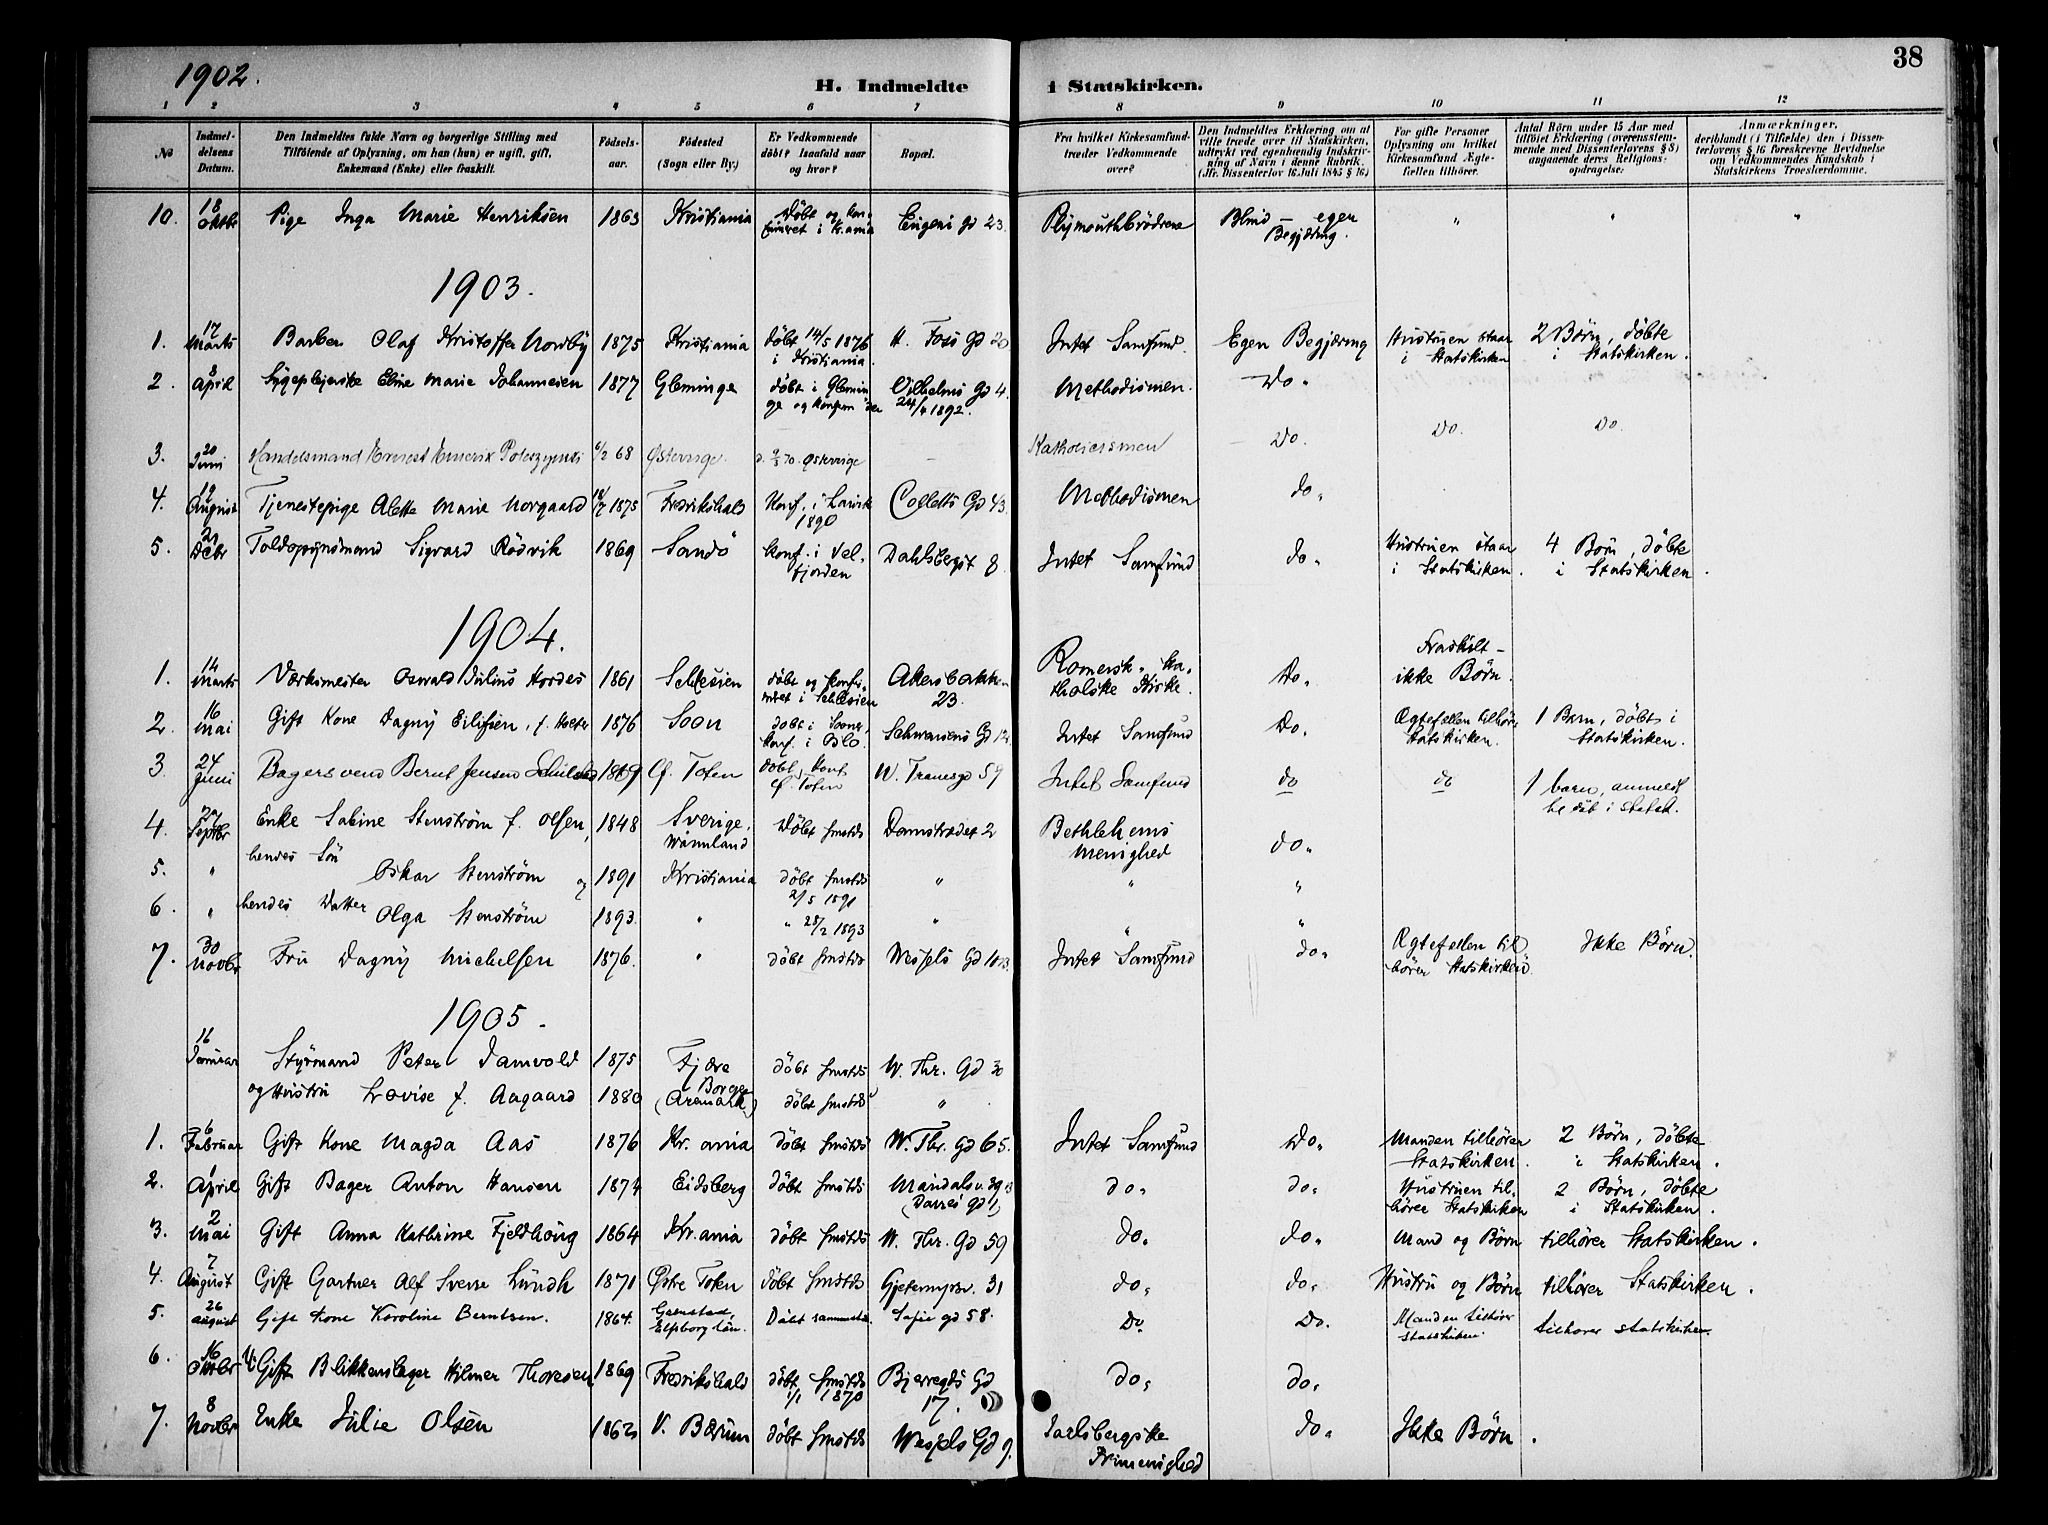 1902.
38
H. Indmeldte i Statskirken.
1 2 3 4 5 6 7 8 9 10 11 12
No
Indmeldelsens Datum.
Den Indmeldtes fulde Navn og borgerlige Stilling med Tilföiende af Oplysning, om han (hun) er ugift, gift, Enkemand (Enke) eller fraskilt.
Födselsaar.
Födested (Sogn eller By.)
Er Vedkommende döbt? Isaafald naar og hvor?
Bopæl.
Fra hvilket Kirkesamfund træder Vedkommende over?
Den Indmeldtes Erklæring om at ville træde over til Statskirken, udtrykt ved egenhændig Indskrivning af Navn i denne Rubrik. (Jfr. Dissenterlov 16 Juli 1845 § 16)
For gifte Personer Oplysning om hvilket Kirkesamfund Ægtefællen tilhörer.
Antal Börn under 15 Aar med tilföiet Erklæring (overensstemmende med Dissenterlovens § 8) angaaende deres Religionsopdragelse:
Anmærkninger, deriblandt (i Tilfælde) den i Dissenterlovens § 16 foreskrevne Bevidnelse om Vedkommendes Kundskab i Statskirkens Troeslærdomme.
10. 18 Oktbr Pige Inga Marie Henriksen 1863 Kristiania Döbt og konfirmeret i Kr.ania Eugeni Gd 23. Plymouthbrödrene Blind – egen Begjæring. " " "
1903.
1. 17 Marts Barber Olaf Kristoffer Nordby 1875 Kristiania döbt 14/5 1876 i Kristiania. H. Foss Gd 20 Intet Samfund. Egen Begjæring Hustruen staar i Statskirken 2 Börn, döbte i Statskirken.
2. 8 April Sygepleierske Eline Marie Johannesen 1877 Gleminge döbt i Gleminge og konfirm der 24/4 1892. Vilhelms Gd 4. Methodismen. Do.
3. 20 Juni Handelsmand 6/2 68 Østerrige. d. 9/3 70. Østerrige – Katholicismen – Do. Do. Do.
4. 19 August Tjenestepige Alette Marie Norgaard 18/7 1875 Fredrikshald Konf. i Larvik 1890 Colletts Gd 43. Methodismen do.
5. 21 Debr Toldopsynsmand Sigvard Rödvik 1869 Sandö konf. i Velfjorden Dahlsbergst 8. Intet Samfund do. Hustruen staar i Statskirken. 4 Börn, döbte i Statskirken.
1904.
1. 14 Marts Værkmester Oswald Julius Hordes 1861 Schlesien döbt og konfirmeret i Schlesien Akersbakken 23. Romersk-katholske Kirke. Do. Fraskilt – ikke Börn.
2. 16 Mai Gift Kone Dagny Eilifsen, f. Holter 1876 Soon döbt i Soon, konf. i Oslo. Schwensens Gd 12. Intet Samfund Do. Ægtefællen tilhör. Statskirken. 1 Barn, döbt i Statskirken.
3. 24 Juni Bagersvend Bernt Jensen 1869 Ø. Toten Döbt, konf Ø. Toten W. Thranesgd 59 Intet Samfund do do 1 barn, anmeldt til döb i statsk.
4. 27 Septbr Enke Sabine Stenström f. Olsen, 1848 Sverige, Wärmland Döbt smstds Damstrædet 2 Bethlehems Menighed do.
5. " hendes Sön Oskar Stenström og 1891 Kristiania döbt smstds 2/5 1891 " " "
6. " hendes Datter Olga Stenström 1893. " " 28/2 1893 " " "
7. 30 Novbr Fru Dagny Michelsen 1876. " döbt smstds Wessels Gd Intet Samfund do. Ægtefællen tilhörer Statskirken. Ikke Börn.
1905.
16 Januar Styrmand Peter Jamvold 1875 Fjære döbt smstds W. Thr. Gd 30
og Hustru Lovise f. Aagaard 1880 Borge (Aremark) döbt smstds "
1. 6 Februar Gift Kone Magda Aas 1876 Kr.ania döbt smstds W. Thr. Gd 65. Intet Samfund Do. Manden tilhörer Statskirken. 2 Börn, döbte i Statskirken.
2. 1 April Gift Bager Anton Hansen 1874 Eidsberg döbt smstds Mandalsv. (Darres Gd 1) do. do. Hustruen tilhörer Statskirken 2 Börn, döbte i Statskirken.
3. 2 Mai Gift Anna Kathrine Fjeldhoug 1864 Kr.ania döbt smstds W. Thr. Gd 59 do. do. Mand og Börn tilhörer Statskirken.
4. 7 August Gift Gartner Alf Sverre Lundh 1871 Østre Toten döbt smstds Gjetemyrsv. 31 do. do. Hustru og Börn tilhörer Statskirken.
5. 26 august Gift kone Karoline Berntsen. 1864. Elfsborg län. Döbt sammesteds. Sofie gd 58. Do. Do. Manden tilhörer statskirken. tilhører statskirken.
6. 16 Oktbr Gift Blikkenslager Hilmer Thoresen 1869 Fredrikshald döbt smstds 1/1 1870 Bjerregds Gd 17. do. do.
7. 8 Novbr Enke Julie Olsen 1862 V. Bærum döbt smstds Wessels Gd 9. Jarlsbergske Frimenighed do. Ikke Börn.